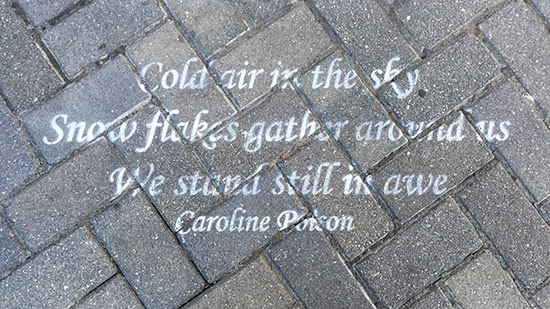 Cold air in the sky
Snow flakes gather around us
We stand still in awe
Caroline Poison